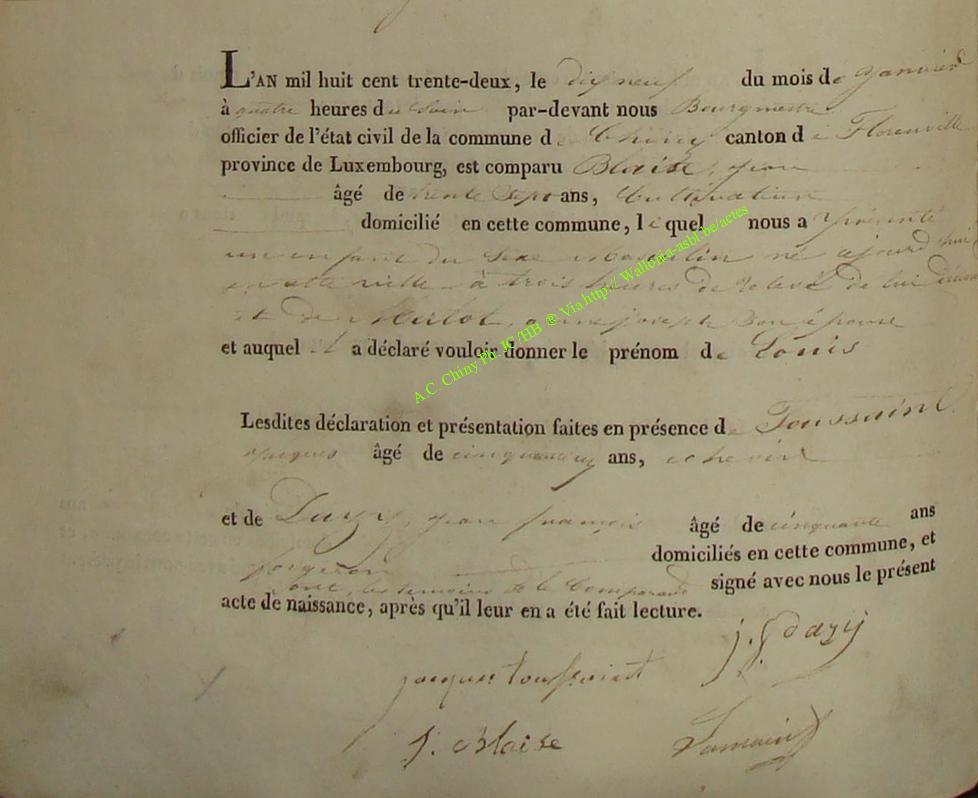 L'AN mil huit cent trente-deux, le dix neuf du mois de janvier
à quatre heures du Soir par-devant nous Bourgmestre
officier de l'état civil de la commune de Chiny canton de Florenville
province de Luxembourg, est comparu Blaise, jean
âgé de trente Sept ans, Cultivateur
domicilié en cette commune, lequel nous a présenté
un enfant du Sexe Masculin né ajourd'hui
en cette ville à trois heures de relevé de lui
et de Merlot, anne joseph Son épouse
et auquel il a déclaré vouloir donner le prénom de Louis
Lesdites déclaration et présentation faites en présence de Toussaint
jacques âgé de ans, echevin
et de Dazy, jean françois âgé de cinquante ans
forgeron domiciliés en cette commune, et
sont, les temoins et le Comparant signé avec nous le présent
acte de naissance, après qu'il leur en a été fait lecture.
j. f. dazy
jacque toussaint
j. Blaise Lamain
A.C. Chiny Ph JC/HB ® Via http:// Wallonia-asbl.be/actes